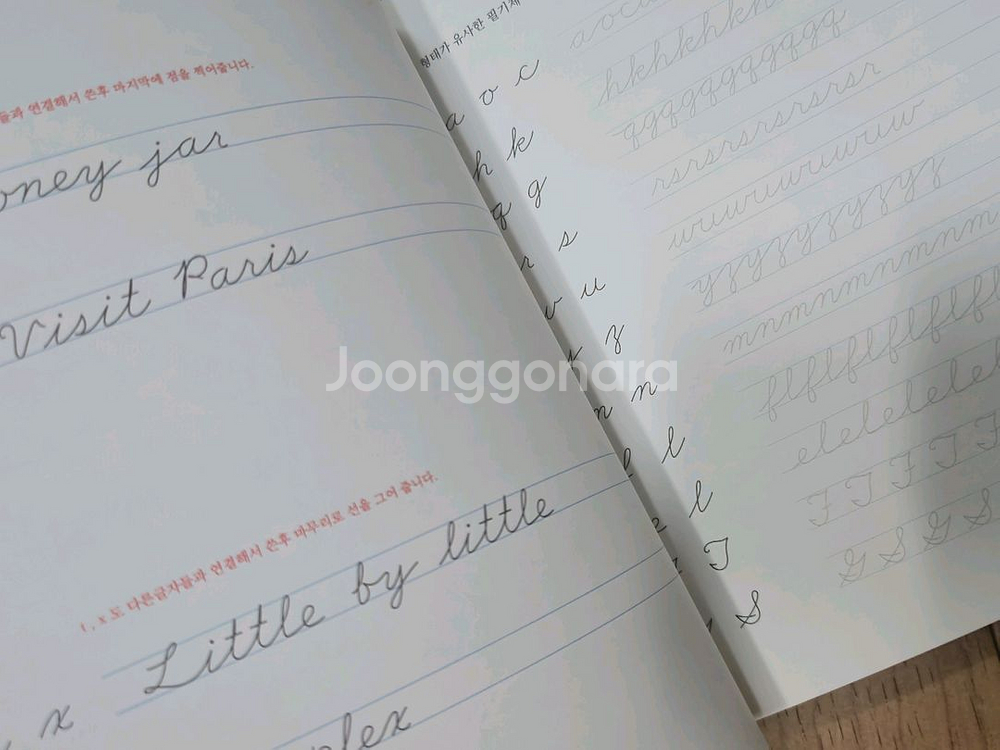 들과 연결해서 쓴후 마지막에 점을 찍어줍니다.
oney jar
Visit Paris
t, x 도 다른글자들과 연결해서 쓴후 마무리로 선을 그어 줍니다.
Little by little
x
plex
형태가 유사한 필기체
a o c
h k
q g
r s
v u
y z
m n
f l
e l
T
S
hkhkhkh
qgqgqgqgqgqg
rsrsrsrsrsrsr
wuwuwuwuwuw
yzyzyzyzyzyz
mnmnmnmnmnm
flflflflflfl
elelelelele
F T F T F
G S G S
Joonggonara